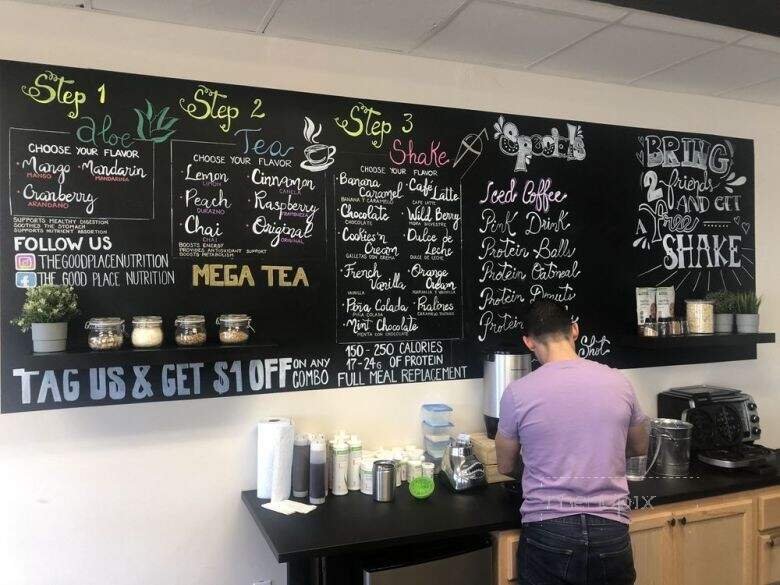 Step 1
Aloe
CHOOSE YOUR FLAVOR
Mango
MANGO
Mandarin
MANDARINA
Cranberry
ARANDANO
SUPPORTS HEALTHY DIGESTION
SOOTHES THE STOMACH
SUPPORTS NUTRIENT ABSORTION
FOLLOW US
THEGOODPLACENUTRITION
THE GOOD PLACE NUTRITION
Step 2
Tea
CHOOSE YOUR FLAVOR
Lemon
LIMON
Peach
DURAZNO
Chai
CHAI
Cinnamon
CANELLA
Raspberry
FRAMBUEZA
Original
ORIGINAL
BOOSTS ENERGY
PROVIDES ANTIOXIDANT SUPPORT
BOOSTS METABOLISM
MEGA TEA
Step 3
Shake
CHOOSE YOUR FLAVOR
Banana
Caramel
BANANA Y CARAMELO
Chocolate
CHOCOLATE
Cookies'n
Cream
GALLETAS CON CREMA
French
Vanilla
VAINILLA
Piña Colada
PIÑA COLADA
Mint Chocolate
MENTA CON CHOCOLATE
Café
Latte
CAFE LATTE
Wild Berry
MORA SILVESTRE
Dulce de
Leche
DULCE DE LECHE
Orange
Cream
NARANJA Y CREMA
Pralines
CARAMELO TOSTADO
150 - 250 CALORIES
17-24G OF PROTEIN
FULL MEAL REPLACEMENT
TAG US & GET $1 OFF ON ANY COMBO
Specials
Iced Coffee
Pink Drink
Protein Balls
Protein Oatmeal
Protein Donuts
Protein
Shot
BRING
2 friends
AND GET
A free
SHAKE